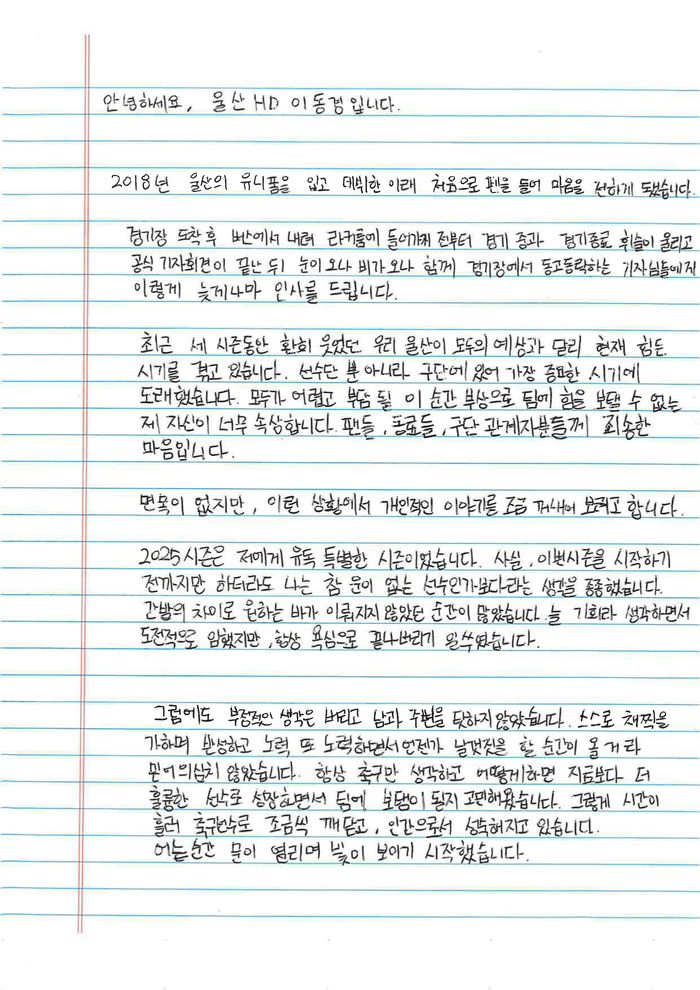 안녕하세요, 울산HD 이동경입니다.
2018년 울산의 유니폼을 입고 데뷔한 이래 처음으로 펜을 들어 마음을 전하게 됐습니다.
경기장 도착 후 버스에서 내려 라커룸에 들어가기 전부터 경기 중과 경기종료 휘슬이 울리고
공식 기자회견이 끝난 뒤 눈이오나 비가오나 함께 경기장에서 동고동락하는 기자님들에게
이렇게 늦게나마 인사를 드립니다.
최근 세 시즌동안 환희 웃었던 우리 울산이 모두의 예상과 달리 현재 힘든
시기를 겪고 있습니다. 선수단 뿐 아니라 구단에 있어 가장 중요한 시기에
도래했습니다. 모두가 어렵고 부담 될 이 순간 부상으로 팀에 힘을 보탤 수 없는
제 자신이 너무 속상합니다. 팬들, 동료들, 구단 관계자분들께 죄송한
마음입니다.
면목이 없지만, 이런 상황에서 개인적인 이야기를 조금 꺼내어 보려고 합니다.
2025시즌은 저에게 유독 특별한 시즌이었습니다. 사실, 이번시즌을 시작하기
전까지만 하더라도 나는 참 운이 없는 선수인가보다라는 생각을 종종했습니다.
간발의 차이로 원하는 바가 이뤄지지 않았던 순간이 많았습니다. 늘 기회라 생각하면서
도전적으로 임했지만, 항상 욕심으로 끝나버리기 일쑤였습니다.
그럼에도 부정적인 생각은 버리고 남과 주변을 탓하지 않았습니다. 스스로 채찍을
가하며 반성하고 노력 또 노력하면서 언젠가 날갯짓을 할 순간이 올 거라
믿어 의심치 않았습니다. 항상 축구만 생각하고 어떻게하면 지금보다 더
훌륭한 선수로 성장하면서 팀에 보탬이 될지 고민해왔습니다. 그렇게 시간이
흘러 축구선수로 조금씩 깨닫고, 인간으로서 성숙해지고 있습니다.
어느순간 문이 열리며 빛이 보이기 시작했습니다.